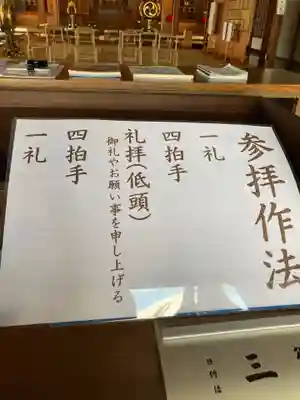 参拝作法
一礼
四拍手
礼拝(低頭)
御礼やお願い事を申し上げる
四拍手
一礼
三